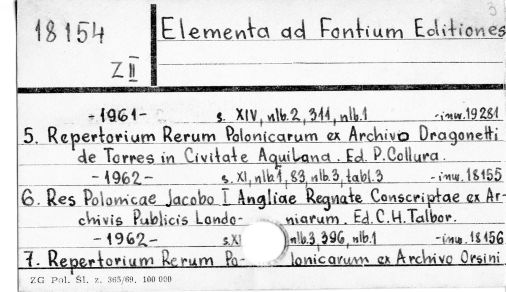 3
18154
Z II
Elementa ad Fontium Editiones
-1961- s. XIV, nlb.2, 311, nlb.1 -inw.19281
5. Repertorium Rerum Polonicarum ex Archivo Dragonetti
de Torres in Civitate Aquilana. Ed. P. Collura.
-1962- s. XI, nlb.1, 83, nlb.3, tabl.3 -inw.18155
6. Res Polonicae Jacobo I Angliae Regnate Conscriptae ex Ar-
chivis Publicis Londo- niarum. Ed. C.H. Talbor.
-1962- s. XI nlb.3, 396, nlb.1 -inw.18156
7. Repertorium Rerum Po- lonicarum ex Archivo Orsini
ZG Pol. Śl. z. 365/69. 100 000